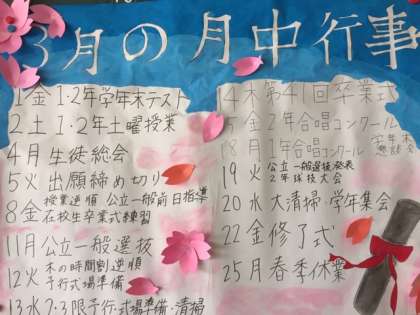 3月の月中行事
1金 1・2年学年末テスト
2土 1・2年土曜授業
4月 生徒総会
5火 出願締め切り
8金 授業巡順 公立一般前日指導
在校生卒業式練習
11月 公立一般選抜
12火 木の時間割巡順
予行式場準備
13水 2・3限予行・式場準備・清掃
14木 第41回卒業式
15金 2年合唱コンクール
18月 1年合唱コンクール
19火 公立一般選抜発表
2年球技大会
20水 大清掃・学年集会
22金 修了式
25月 春季休業